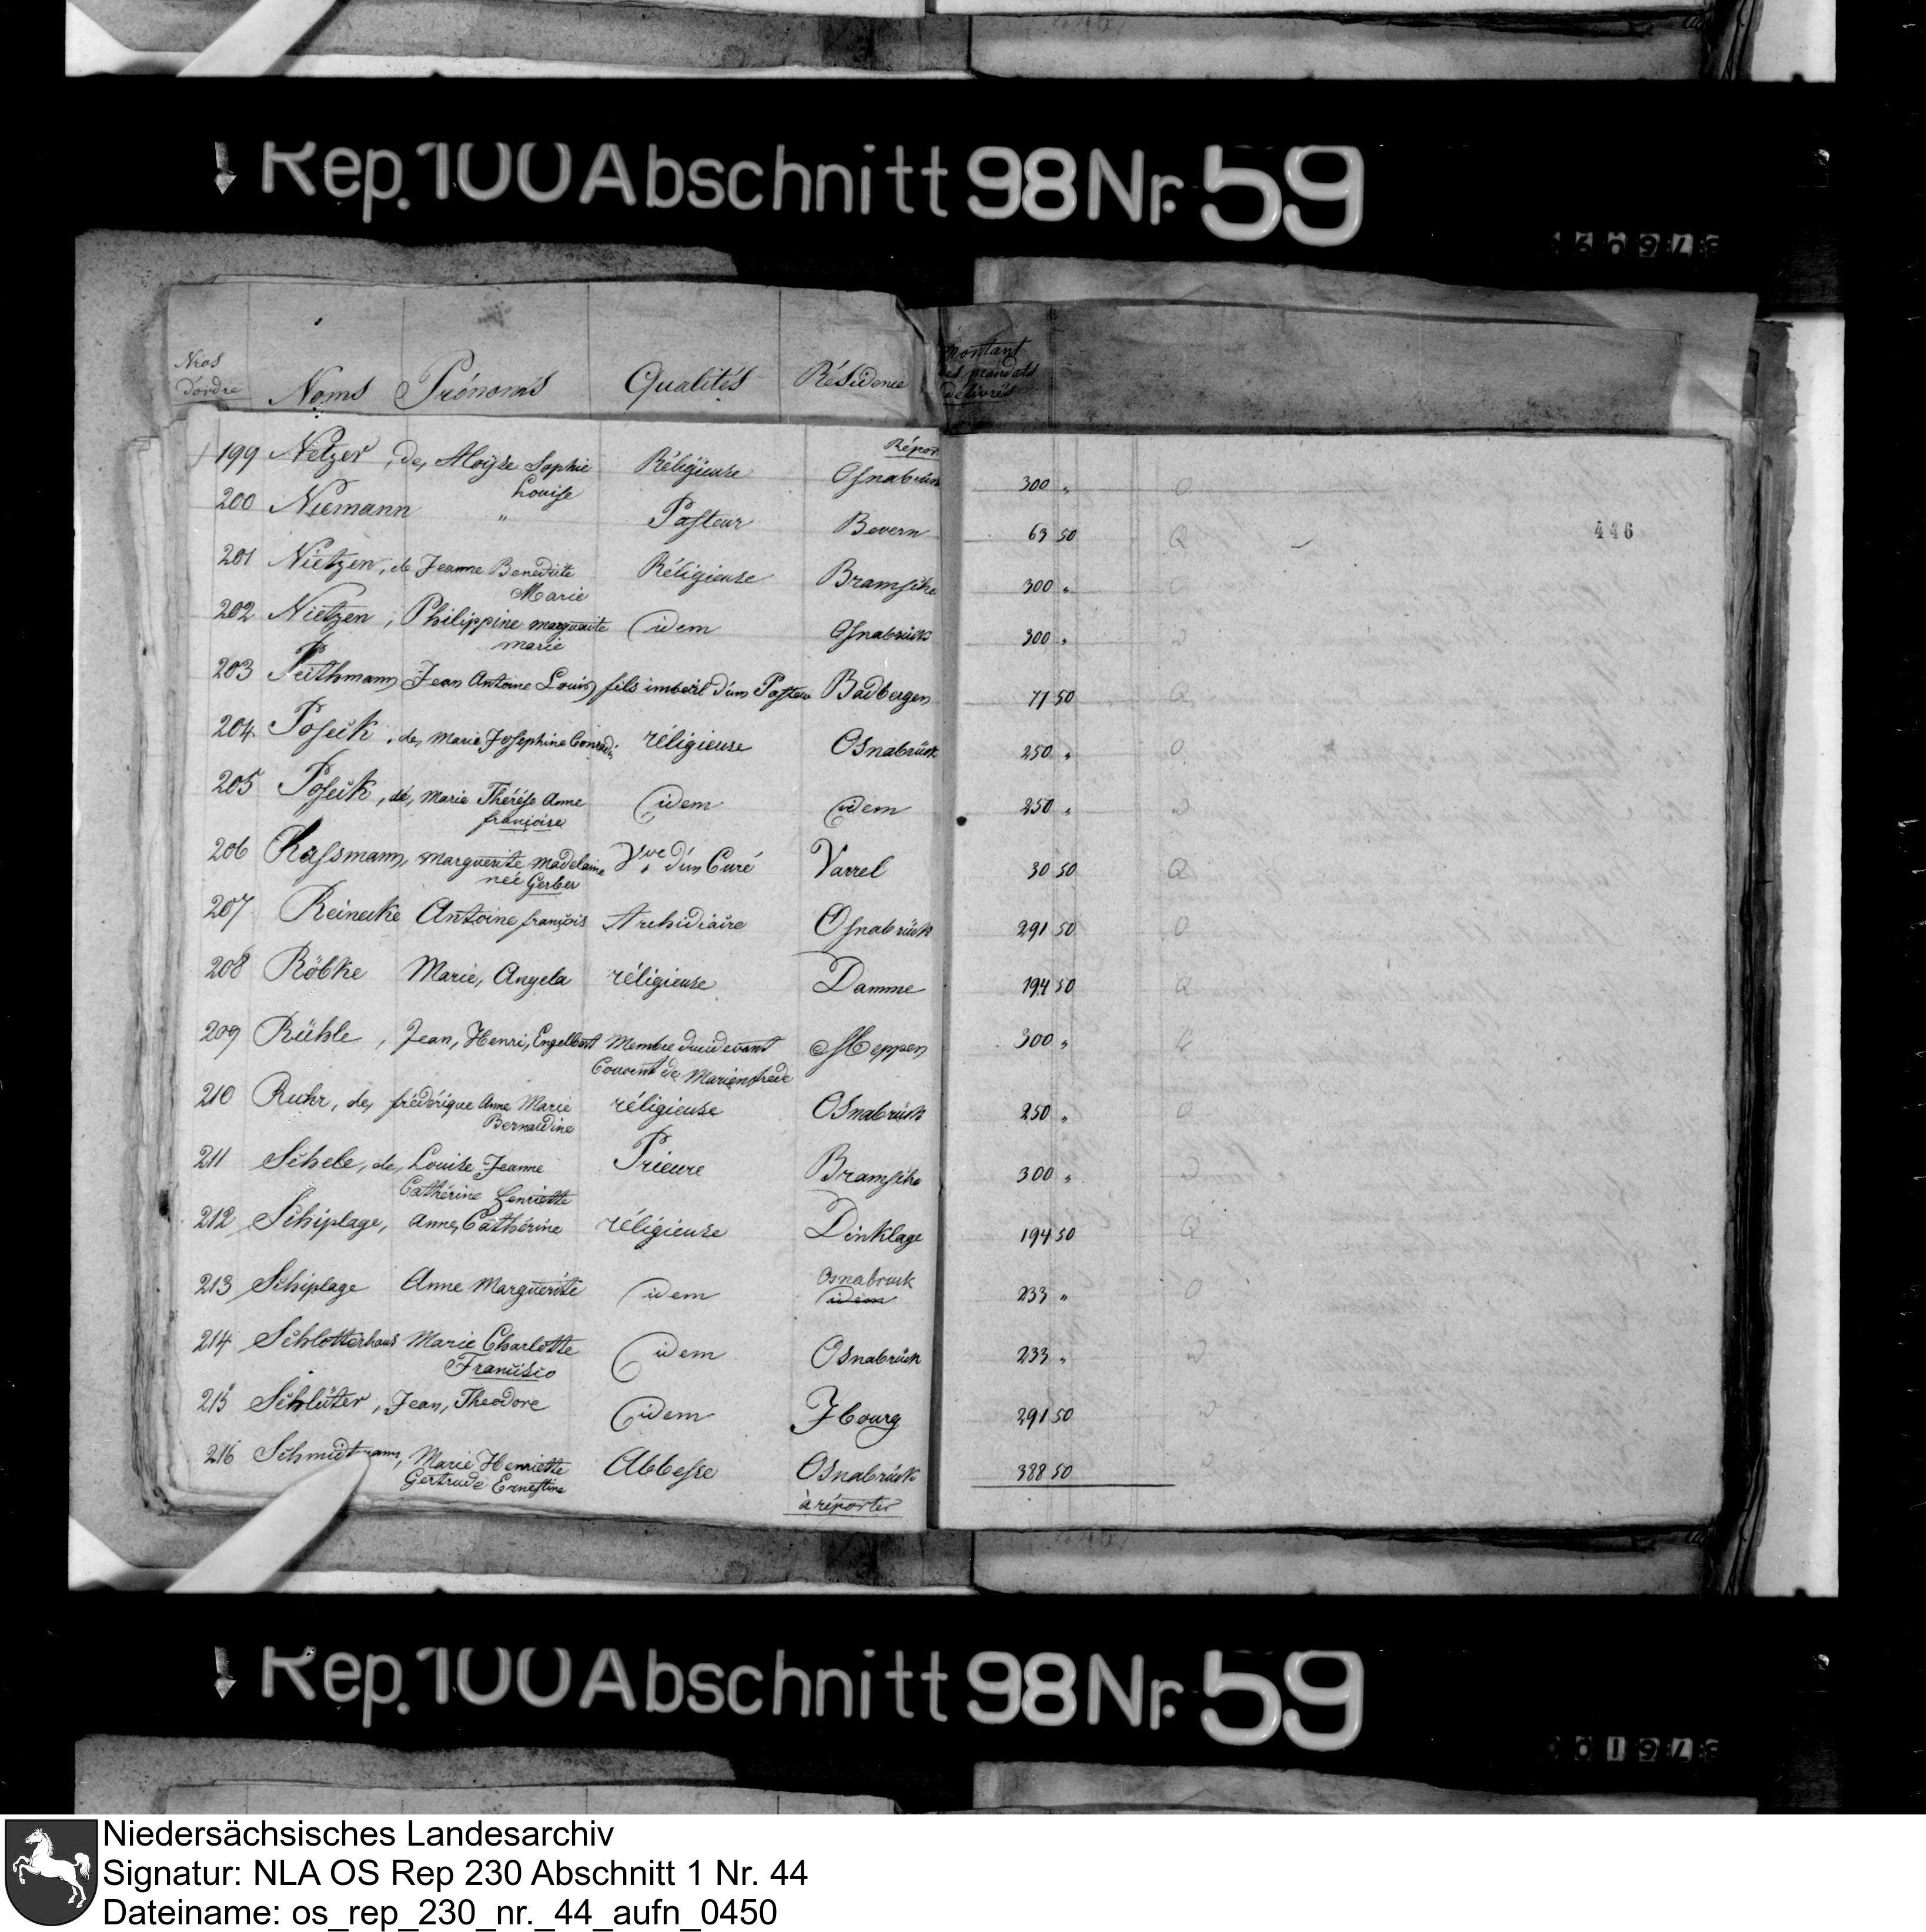 Rep. 100 Abschnitt 98 Nr. 59
Nros d'ordre Noms Prénoms Qualités Résidence Montant des mandats délivrés
Répor
199 Netzer, de, Aloÿse Sophie Réligieuse Osnabrück 300 "
Louise
200 Niemann " Pasteur Bevern 63 50
446
201 Nietzen, de Jeanne Benedicte Réligieuse Bramsche 300 "
Marie
202 Nietzen, Philippine marguerite idem Osnabrück 300 "
marie
203 Peithmann Jean Antoine Louis fils imbécil d'un Pasteur Badbergen 77 50
204 Poseck, de, Marie Josephine réligieuse Osnabrück 250 "
205 Poseck, de, Marie Thérése Anne idem idem 250 "
françoise
206 Rassmann, Marguerite Madelaine Vve d'un Curé Varrel 30 50
née Gerber
207 Reinecke Antoine françois Archidiaire Osnabrück 291 50
208 Röbke Marie, Angela réligieuse Damme 194 50
209 Rühle, Jean, Henri, Engelbert Membre du cidevant Meppen 300 "
Couvent de
210 Ruhr, de, frédérique Anne Marie réligieuse Osnabrück 250 "
Bernardine
211 Schele, de, Louise Jeanne Prieure Bramsche 300 "
Cathérine Henriette
212 Schiplage, Anne, Cathérine réligieuse Dinklage 194 50
Osnabruck
213 Schiplage Anne Marguérite idem idem 233 "
214 Schlotterhaus Marie Charlotte idem Osnabrück 233 "
215 Schlüter, Jean, Theodore idem Jbourg 291 50
216 Schmidtmann, Marie Henriette Abbesse Osnabrück 388 50
Gertrude Ernestine
à réporter
Rep. 100 Abschnitt 98 Nr. 59
Niedersächsisches Landesarchiv
Signatur: NLA OS Rep 230 Abschnitt 1 Nr. 44
Dateiname: os_rep_230_nr._44_aufn_0450